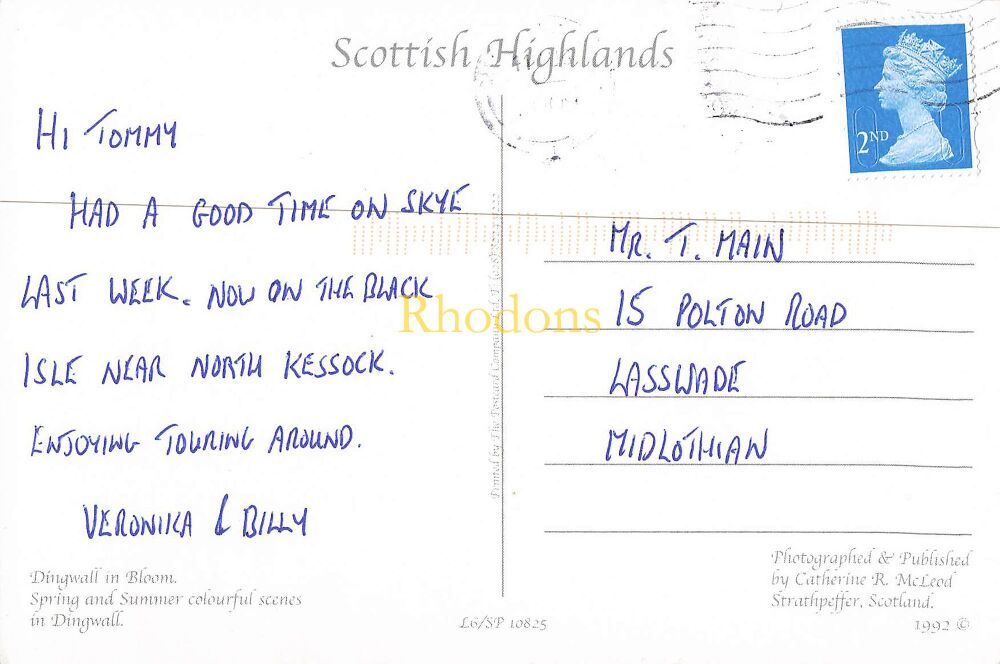 Scottish Highlands
2ND
HI TOMMY
HAD A GOOD TIME ON SKYE
LAST WEEK. NOW ON THE BLACK
ISLE NEAR NORTH KESSOCK.
ENJOYING TOURING AROUND.
VERONIKA & BILLY
MR. T. MAIN
15 POLTON ROAD
LASSWADE
MIDLOTHIAN
Rhodons
Printed by The Postcard Company
Dingwall in Bloom.
Spring and Summer colourful scenes
in Dingwall.
L6/SP 10825
Photographed & Published
by Catherine R. McLeod
Strathpeffer, Scotland.
1992 ©